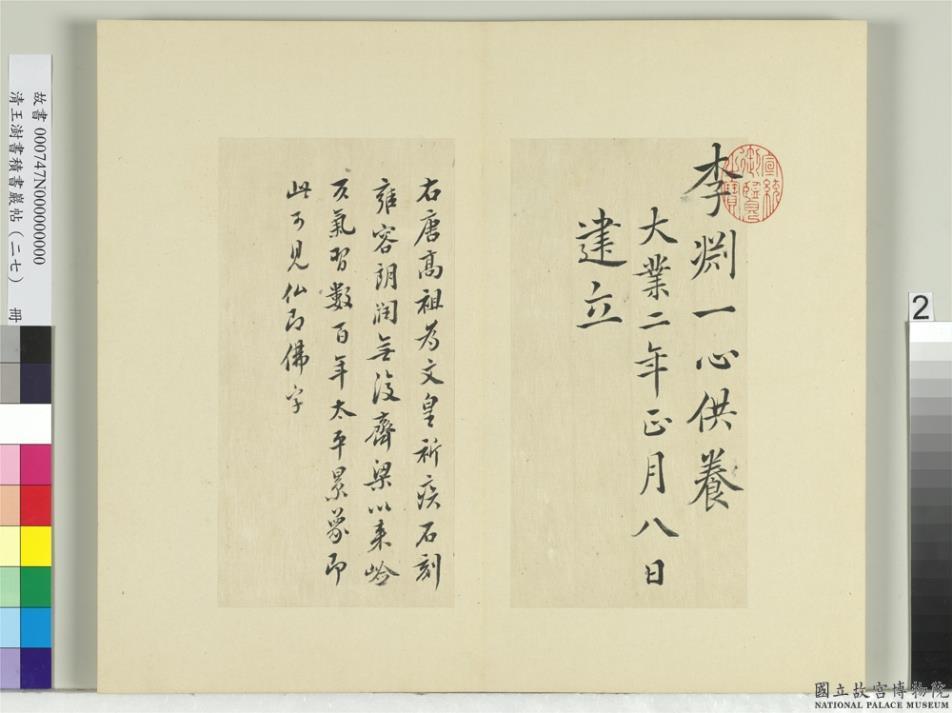 李淵一心供養
大業二年正月八日
建立
右唐高祖為文皇祈疾石刻
雍容朗潤無復齊梁以來
氣習數百年太平景象即
此可見仏即佛字
宣統御覽之寶
故書 000747N000000000
清王澍書積書巖帖(二七) 冊
2
國立故宮博物院
NATIONAL PALACE MUSEUM